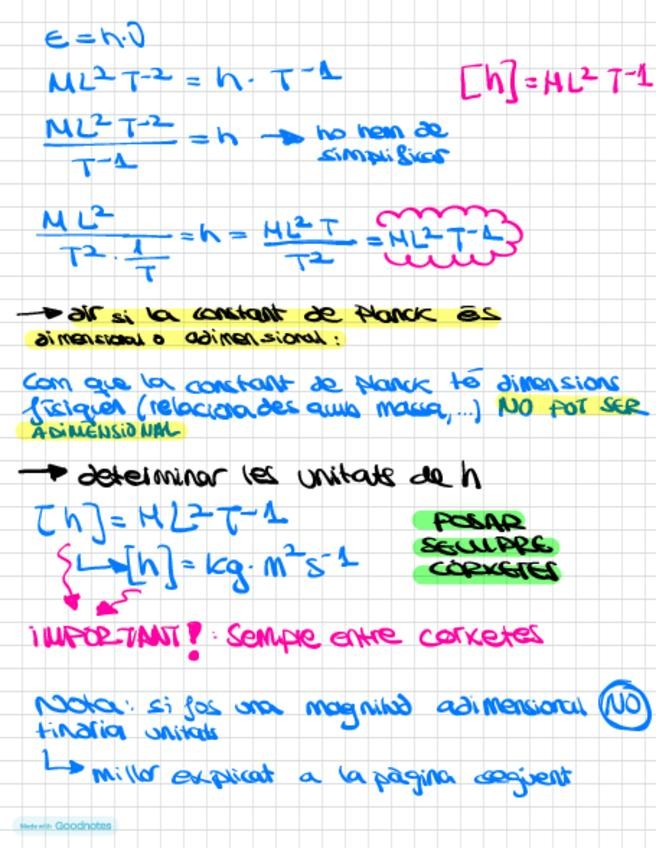 E = h·ν
ML² T⁻² = h · T⁻¹
[h] = ML² T⁻¹
ML² T⁻² / T⁻¹ = h → ho hem de
simplificar
ML² / T² · 1/T = h = ML² T / T² = ML² T⁻¹
→ dir si la constant de Planck és
dimensional o adimensional:
Com que la constant de Planck té dimensions
físiques (relacionades amb massa,...) NO POT SER
ADIMENSIONAL
→ determinar les unitats de h
[h] = ML² T⁻¹
↳ [h] = kg · m² s⁻¹
POSAR
SEMPRE
CORXETES
¡IMPORTANT! : sempre entre corxetes
Nota: si fos una magnitud adimensional NO
tindria unitats
↳ millor explicat a la pàgina següent
Made with Goodnotes